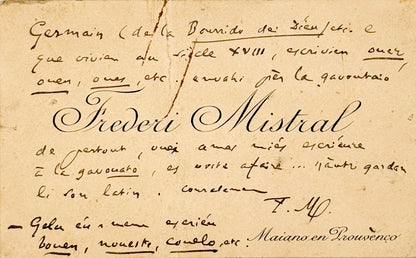 Germain (de la Bourrido dei Diéu) etc. e
que vivien au siècle XVIII, escrivien ouer,
ouen, oues, etc. envahi per la gavoutaio
Frederi Mistral
de pertout, amas miés escriéure
à la gavouato, es voste afaire ... gardan
li son latin. couralamen
F. M.
— Gelu éu-meme escriéu
bouen, nouestre, couelo, etc.
Maiano en Prouvènço